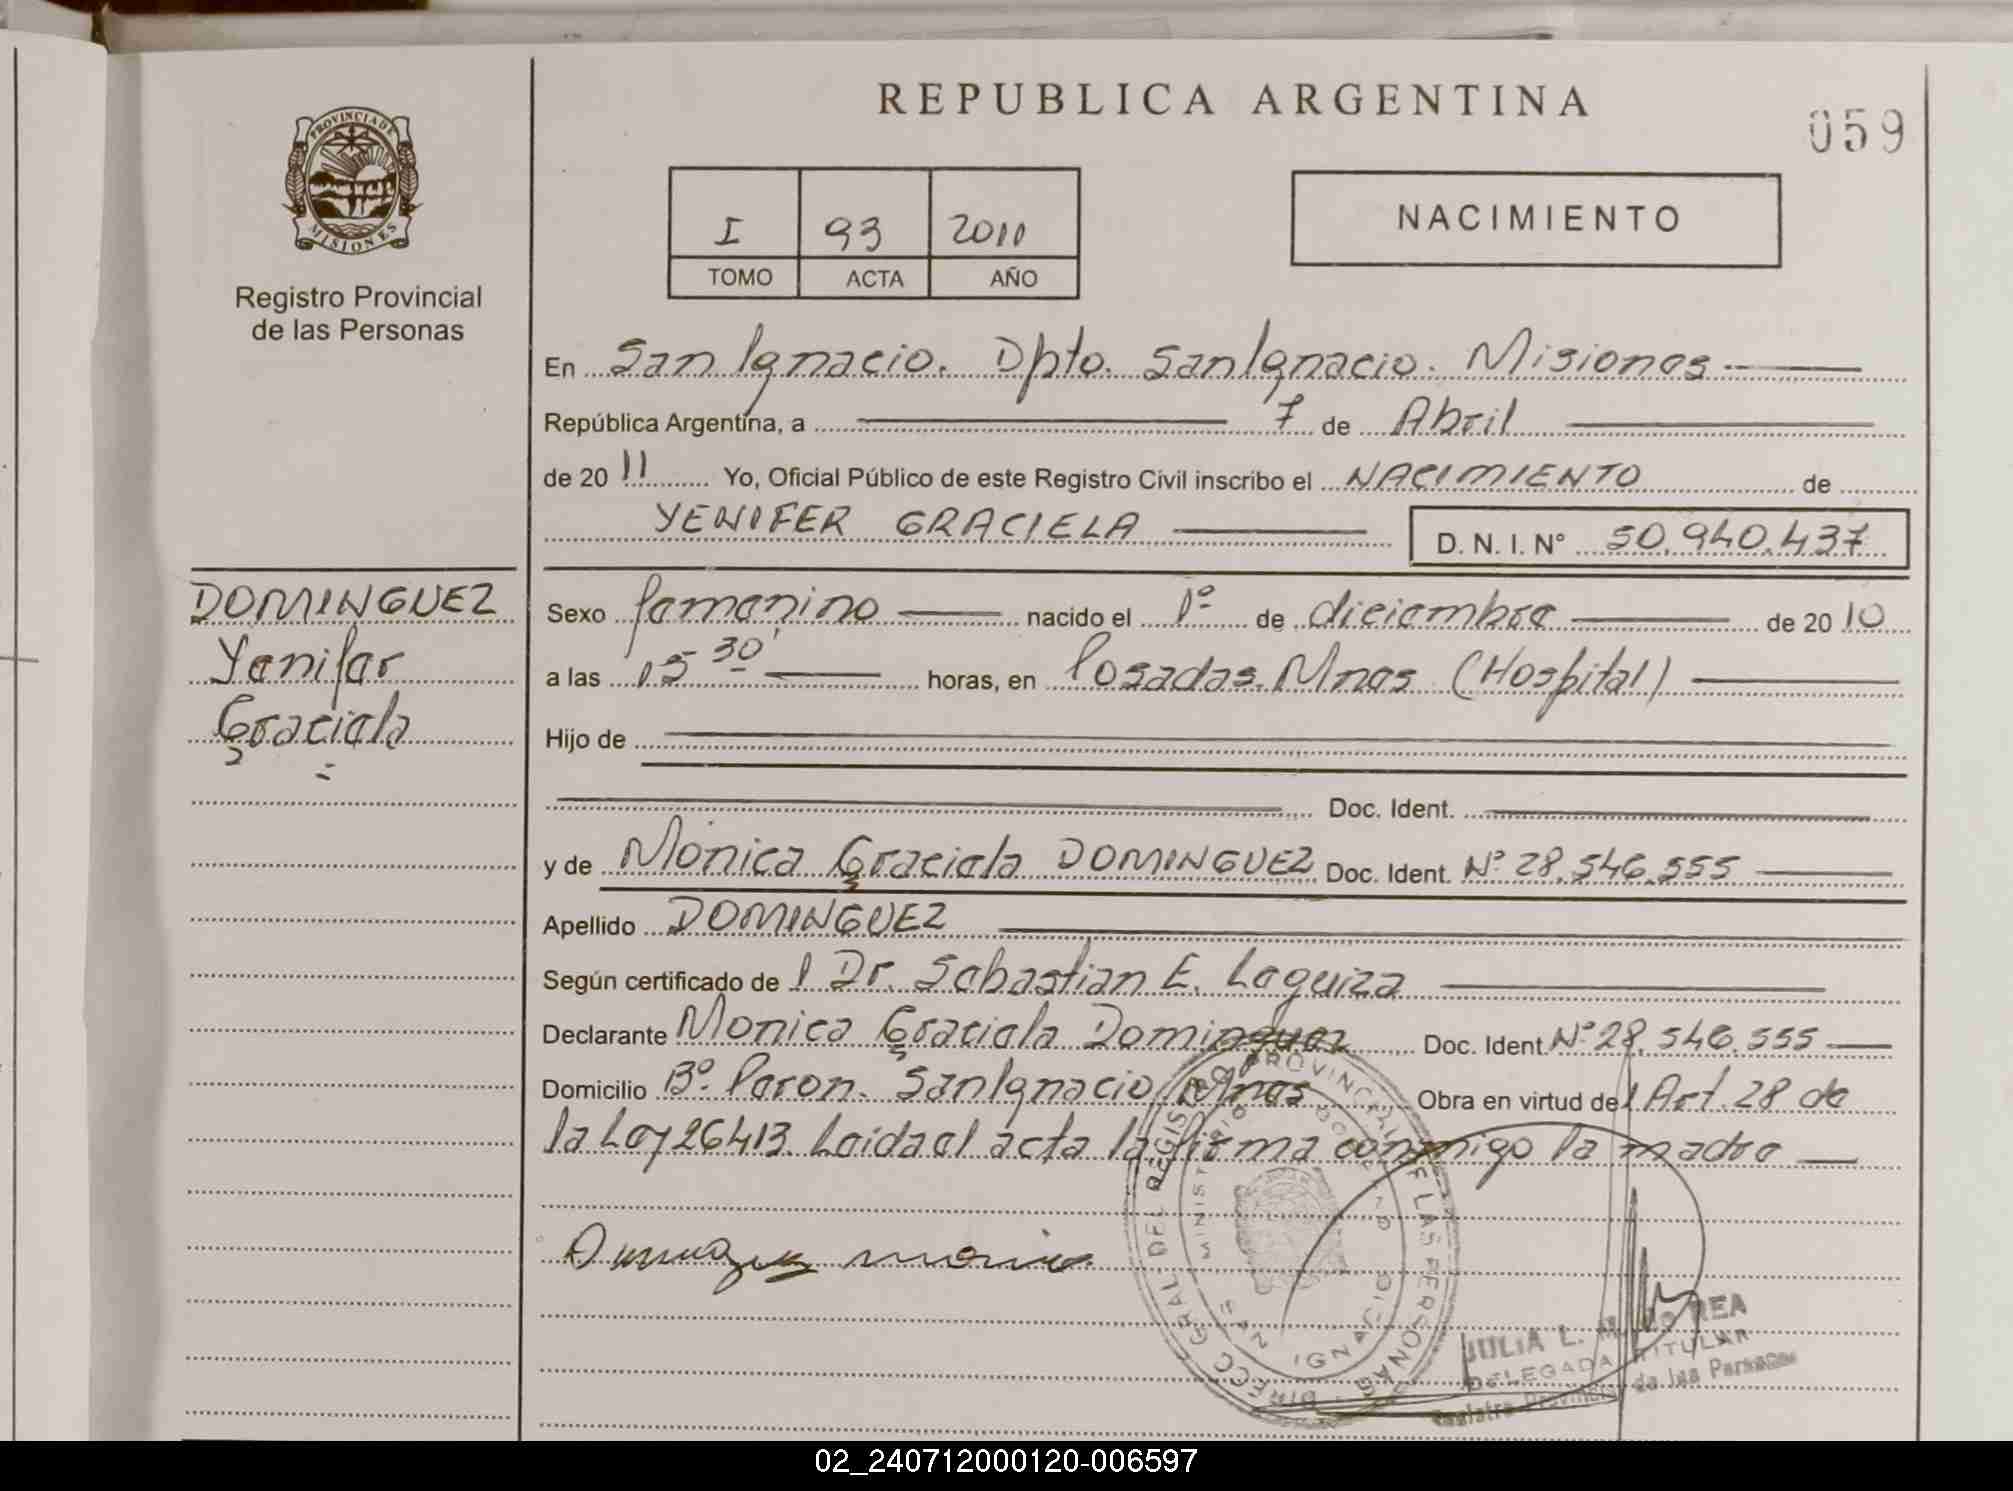 REPUBLICA ARGENTINA
059
PROVINCIA DE
MISIONES
Registro Provincial
de las Personas
I 93 2011
TOMO ACTA AÑO
NACIMIENTO
En San Ignacio. Dpto. San Ignacio. Misiones
República Argentina, a 7 de Abril
de 20 11 Yo, Oficial Público de este Registro Civil inscribo el NACIMIENTO de
YENIFER GRACIELA D. N. I. N° 50.940.437
DOMINGUEZ
Yenifer
Graciela
Sexo femenino nacido el 1º de diciembre de 20 10
a las 15 30' horas, en Posadas. Mnes (Hospital)
Hijo de
Doc. Ident.
y de Mónica Graciela DOMINGUEZ Doc. Ident. Nº 28.546.555
Apellido DOMINGUEZ
Según certificado de l Dr. Sebastian E. Leguiza
Declarante Monica Graciela Dominguez Doc. Ident. Nº 28.546.555
Domicilio Bº. Peron. San Ignacio Mnes Obra en virtud de l Art. 28 de
la Ley 26413. Leida el acta la firma conmigo la madre
Dominguez Monica
DIRECC GRAL DEL REGISTRO PROVINCIAL DE LAS PERSONAS
MINISTERIO DE GOBIERNO
SAN IGNACIO
JULIA L.
DELEGADA TITULAR
Registro Provincial de las Personas
02_240712000120-006597